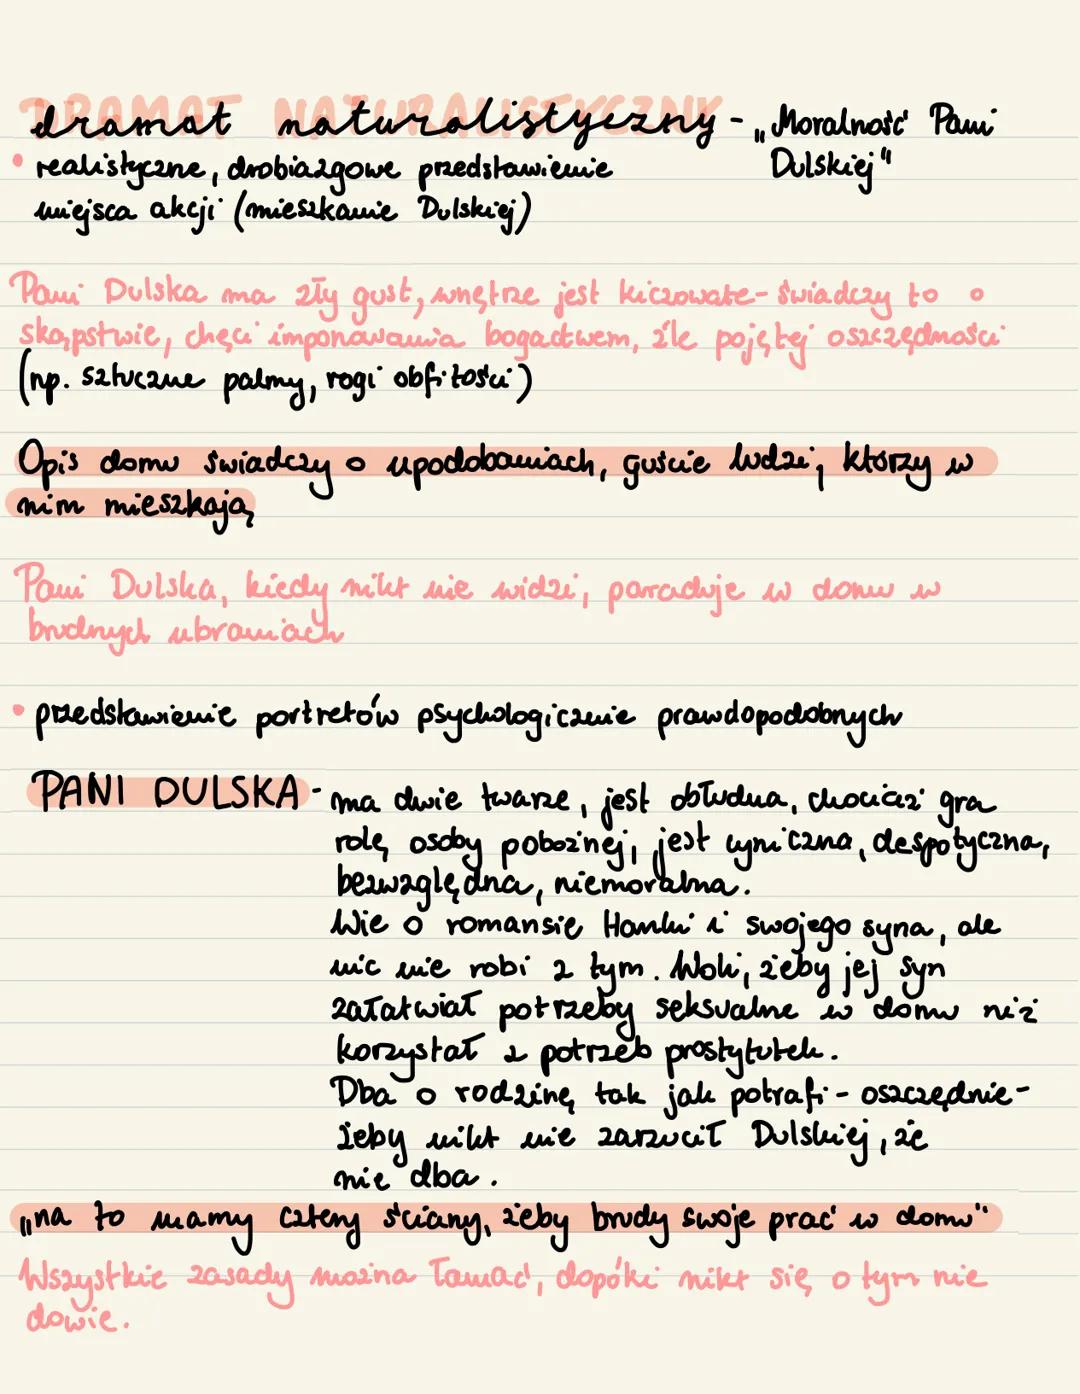 DRAMAT NATURALISTYCZNY
dramat naturalistyczny - „Moralność Pani Dulskiej"
• realistyczne, drobiazgowe przedstawienie
miejsca akcji (mieszkanie Dulskiej)
Pani Dulska ma zły gust, wnętrze jest kiczowate - świadczy to o
skąpstwie, chęci imponowania bogactwem, źle pojętej oszczędności
(np. sztuczne palmy, rogi obfitości)
Opis domu świadczy o upodobaniach, guście ludzi, którzy w
nim mieszkają
Pani Dulska, kiedy nikt nie widzi, paraduje w domu w
brudnych ubraniach
• przedstawienie portretów psychologicznie prawdopodobnych
PANI DULSKA - ma dwie twarze, jest obłudna, chociaż gra
rolę osoby pobożnej, jest cyniczna, despotyczna,
bezwzględna, niemoralna.
Wie o romansie Hanki i swojego syna, ale
nic nie robi z tym. Woli, żeby jej syn
załatwiał potrzeby seksualne w domu niż
korzystał z potrzeb prostytutek.
Dba o rodzinę tak jak potrafi - oszczędnie -
żeby nikt nie zarzucił Dulskiej, że
nie dba.
„na to mamy cztery ściany, żeby brudy swoje prać w domu"
Wszystkie zasady można łamać, dopóki nikt się o tym nie
dowie.